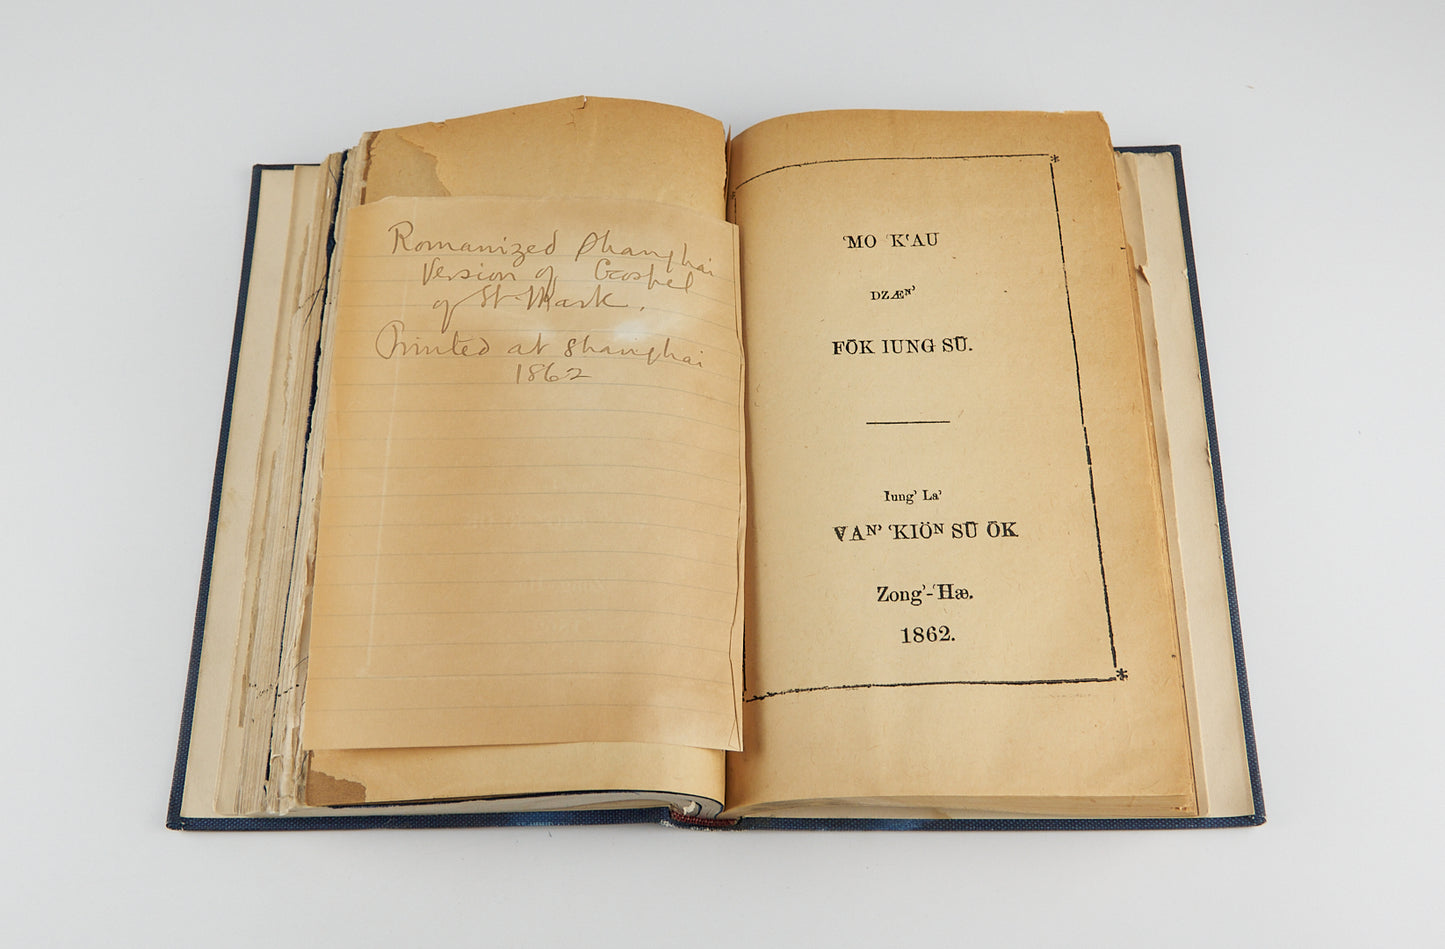 Romanized Shanghai
Version of Gospel
of St Mark.
Printed at Shanghai
1862
ʻMO KʻAU
DZÆᴺʼ
FŌK IUNG SŪ.
Iungʼ Laʼ
VAᴺʼ ʻKIÖᴺ SŪ ŌK
Zongʼ-ʻHæ.
1862.